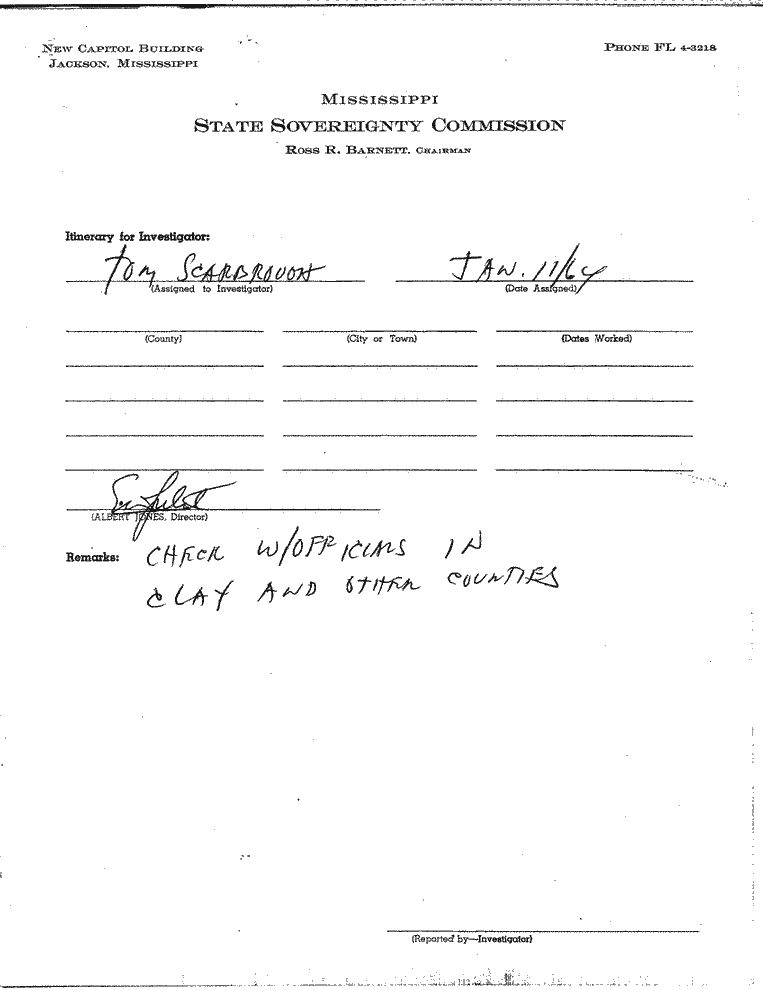 NEW CAPITOL BUILDING
JACKSON, MISSISSIPPI
PHONE FL 4-3218
MISSISSIPPI
STATE SOVEREIGNTY COMMISSION
ROSS R. BARNETT, CHAIRMAN
Itinerary for Investigator:
TOM SCARBROUGH JAN. 11/64
(Assigned to Investigator) (Date Assigned)
(County) (City or Town) (Dates Worked)
(ALBERT JONES, Director)
Remarks: CHECK W/OFFICIALS IN
CLAY AND OTHER COUNTIES
(Reported by—Investigator)